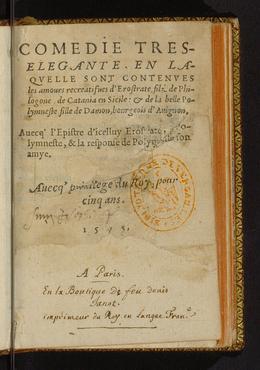 COMEDIE TRES-
ELEGANTE. EN LA-
QVELLE SONT CONTENVES
les amours recreatifues d'Erostrate, filz de Phi-
logone de Catania en Sicile: & de la belle Po-
lymneste fille de Damon, bourgeois d'Auignon,
Auecq' l'Epistre d'icelluy Erostrate,
lymneste, & la response de son
amye.
Auecq' priuilege du Roy, pour
cinq ans.
A Paris.
En la Boutique de feu denis
Janot.
imprimeur du Roy en langue Franç